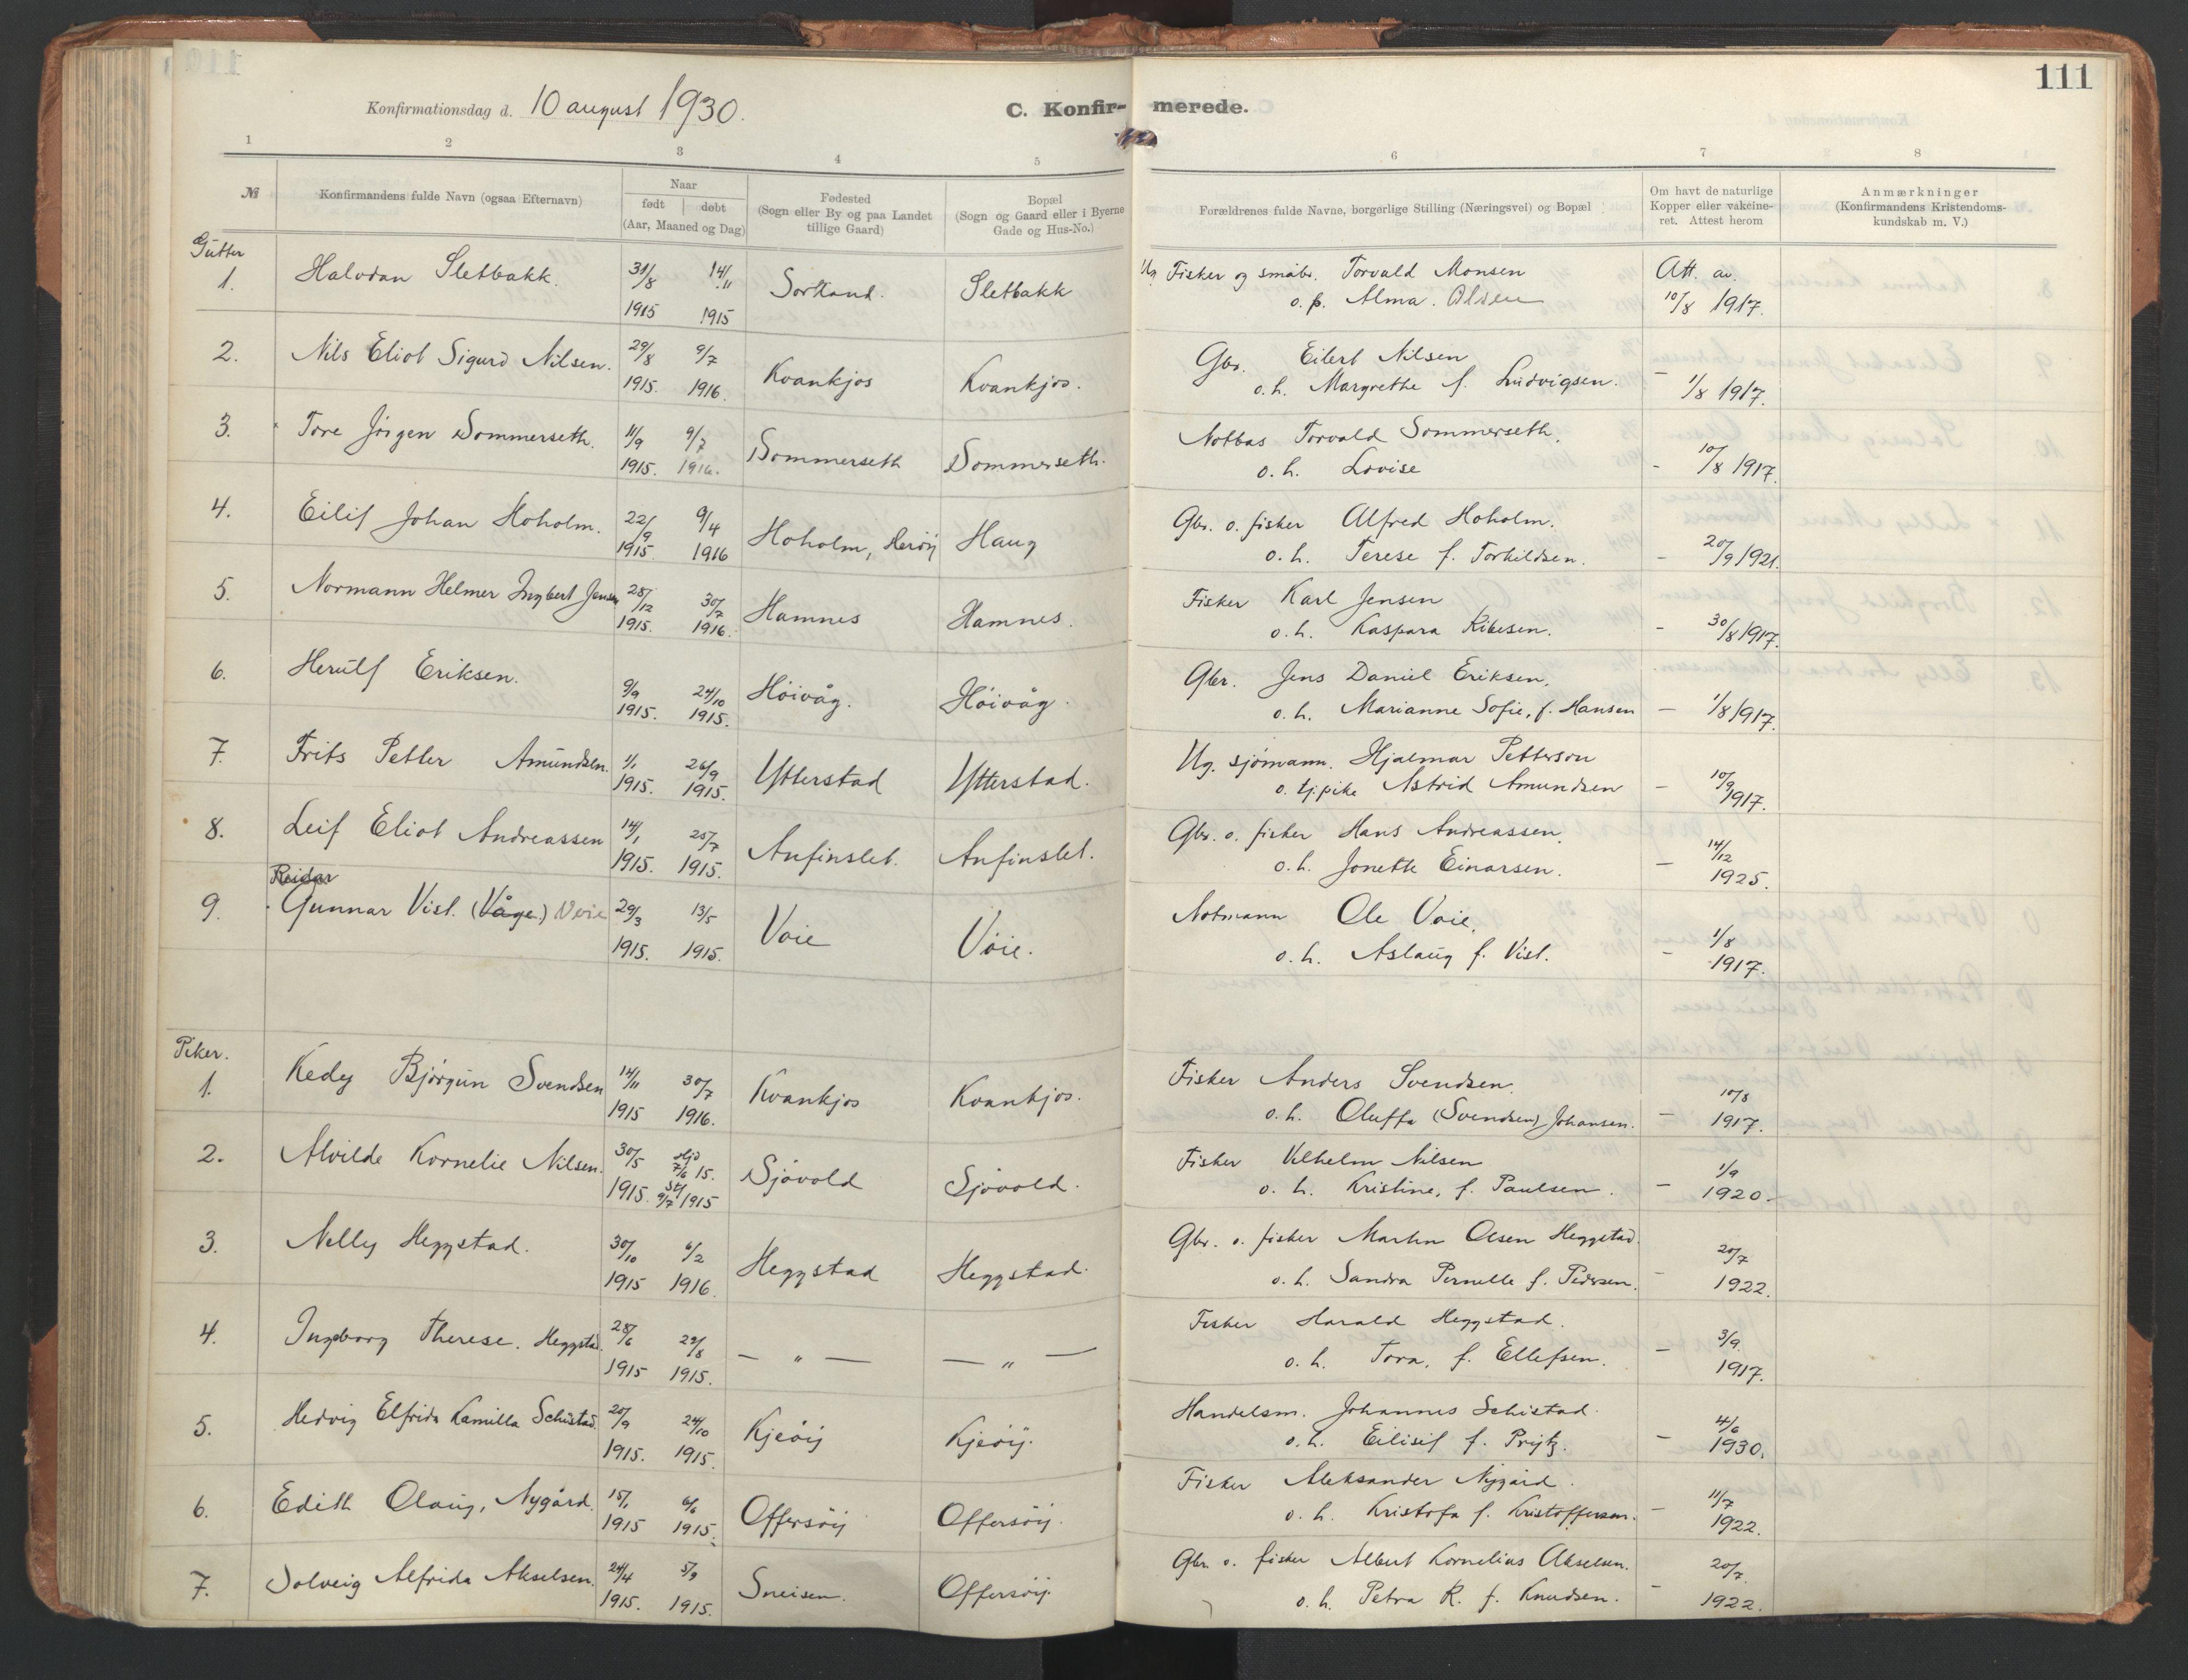 111
Konfirmationsdag d. 10 august 1930.
C. Konfir- merede.
1 2 3 4 5 6 7 8
№
Konfirmandens fulde Navn (ogsaa Efternavn)
Naar
født døbt
(Aar, Maaned og Dag)
Fødested
(Sogn eller By og paa Landet
tillige Gaard)
Bopæl
(Sogn og Gaard eller i Byerne
Gade og Hus-No.)
Forældrenes fulde Navne, borgerlige Stilling (Næringsvei) og Bopæl
Om havt de naturlige
Kopper eller vakcine-
ret. Attest herom
Anmærkninger
(Konfirmandens Kristendoms-
kundskab m. V.)
Gutter
1. Halvdan Sletbakk. 31/8 14/11 Sortland. Sletbakk Ug. Fisker og småbr. Torvald Monsen Att. av.
1915 1915 o. p. Alma. Olsen 10/8 1917.
2. Nils Eliot Sigurd Nilsen. 29/8 9/7 Kvankjos Kvankjos. Gbr. Eilert Nilsen
1915. 1916. o. h. Margrethe f. Ludvigsen. – 1/8 1917.
3. Tore Jörgen Sommerseth. 11/9 9/7 Sommerseth Sommerseth. Notbas Torvald Sommerseth.
1915. 1916. o. h. Lovise – 10/8 1917.
4. Eilif Johan Hoholm. 22/9 9/4 Hoholm, Heröy Haug Gbr. o. fisker Alfred Hoholm.
1915. 1916 o. h. Terese f. Torkildsen. – 20/9 1921.
5. Normann Helmer Ingbert Jensen 28/12 30/7 Hamnes Hamnes. Fisker Karl Jensen
1915. 1916. o. h. Kaspara Ribesen. – 30/8 1917.
6. Herulf Eriksen. 9/9 24/10 Höivåg. Höivåg. Gbr. Jens Daniel Eriksen,
1915. 1915. o. h. Marianne Sofie, f. Hansen – 1/8 1917.
7. Frits Petter Amundsen. 1/1 26/9 Ytterstad Ytterstad. Ug. sjömann. Hjalmar Petterson
1915. 1915. o. tj.pike Astrid Amundsen – 10/9 1917.
8. Leif Eliot Andreassen 14/1 25/7 Anfinslet. Anfinslet. Gbr. o. fisker Hans Andreassen.
1915. 1915. o. h. Jonette Einarsen. – 14/12 1925.
Reidar
9. Gunnar Vist. (Våge.) Voie 29/3 13/5 Voie Vöie. Notmann Ole Voie,
1915. 1915. o. h. Aslaug f. Vist. – 1/8 1917.
Piker.
1. Kedy Björgun Svendsen 14/11 30/7 Kvankjos Kvankjos. Fisker Anders Svendsen.
1915 1916. o. h. Oluffa (Svendsen) Johansen. – 10/8 1917.
2. Alvilde Kornelie Nilsen. 30/5 hjd 7/6 15. Sjövold Sjövold. Fisker Vilhelm Nilsen
1915. st/ 9/7 1915 o. h. Kristine, f. Paulsen. – 1/9 1920.
3. Nelly Heggstad. 30/10 6/2 Heggstad Heggstad. Gbr. o. fisker Martin Olsen Heggstad.
1915 1916. o. h. Sandra Pernelle f. Pedersen. – 20/7 1922.
4. Ingeborg Therese. Heggstad. 28/6 29/8 — " — — " — Fisker Harald Heggstad.
1915 1915. o. h. Tora, f. Ellefsen. – 3/9. 1917.
5. Hedvig Elfrida Kamilla Schistad. 20/9 24/10 Kjeöy Kjeöy. Handelsm. Johannes Schistad.
1915. 1915. o. h. Eilisif f. Prytz. – 4/6 1930.
6. Edith Olaug, Nygård. 15/1 6/6 Offersöy Offersöy. Fisker Aleksander Nygård.
1915 1915. o. h. Kristofa f. Kristoffersen. – 11/7 1922.
7. Solveig Alfrida Akselsen. 24/4 5/9 Sneisen. Offersöy. Gbr. o. fisker Albert Kornelius Akselsen.
1915. 1915. o. h. Petra R. f. Knudsen. – 20/7. 1922.